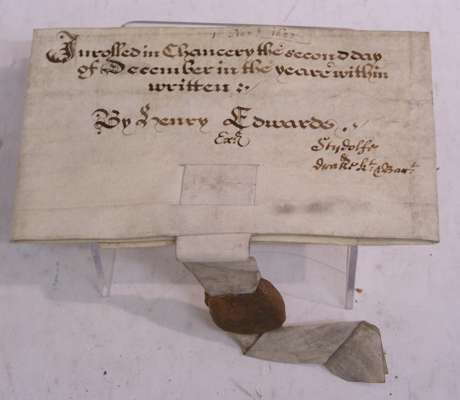 Inrolled in Chancery the second day
of December in the yeare within
written
By Henry Edwards
Exr
Stydolfe
&
drake kt & Bart